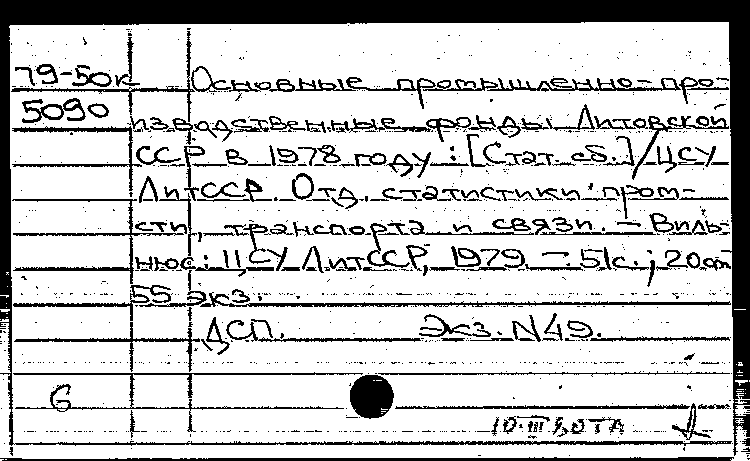 79-50к Основные промышленно-про-
5090 изводственные фонды Литовской
ССР в 1978 году : [Стат. сб.] / ЦСУ
ЛитССР. Отд. статистики пром-
сти, транспорта и связи. — Виль-
нюс : ЦСУ ЛитССР, 1979. — 51с. ; 20см
55 экз.
ДСП. Экз. N49.
6
10.III